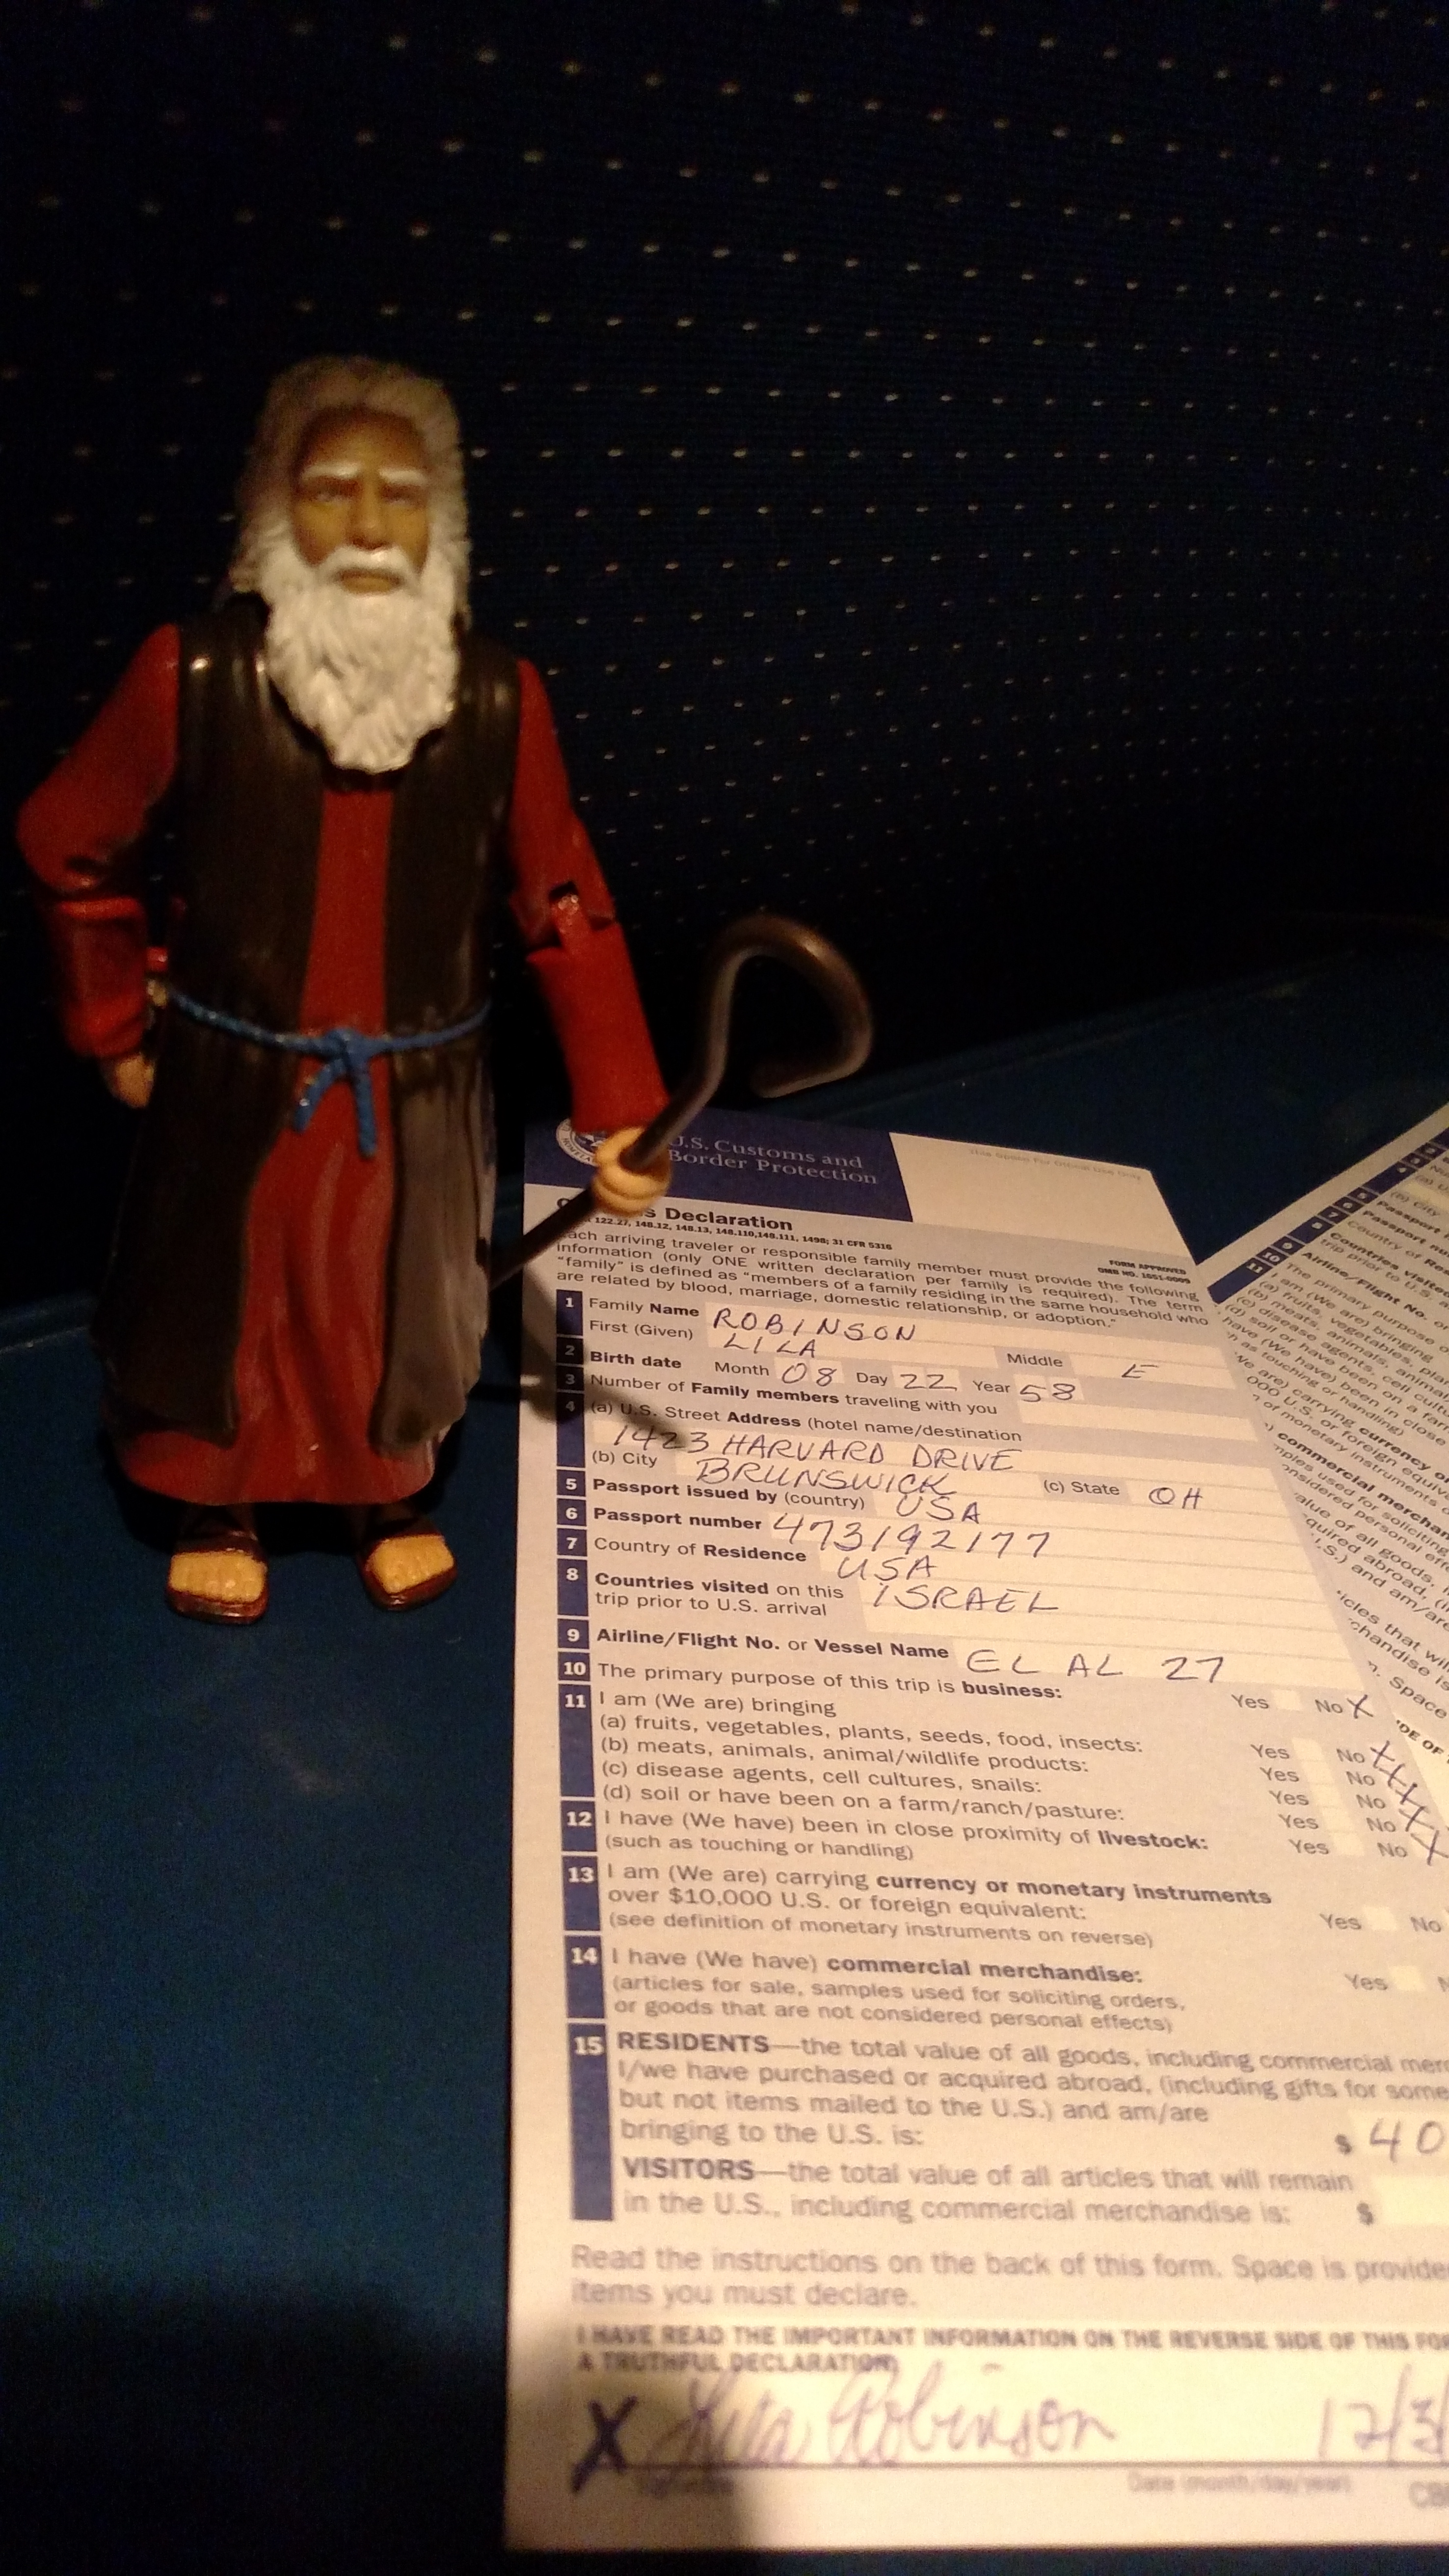 U.S. Customs and
Border Protection
This Space For Official Use Only
s Declaration
122.27, 148.12, 148.13, 148.110,148.111, 1498; 31 CFR 5316
FORM APPROVED
OMB NO. 1651-0009
Each arriving traveler or responsible family member must provide the following
information (only ONE written declaration per family is required). The term
"family" is defined as "members of a family residing in the same household who
are related by blood, marriage, domestic relationship, or adoption."
1 Family Name ROBINSON
First (Given) LILA Middle E
2 Birth date Month 08 Day 22 Year 58
3 Number of Family members traveling with you
4 (a) U.S. Street Address (hotel name/destination
1423 HARVARD DRIVE
(b) City BRUNSWICK (c) State OH
5 Passport issued by (country) USA
6 Passport number 473192177
7 Country of Residence USA
8 Countries visited on this ISRAEL
trip prior to U.S. arrival
9 Airline/Flight No. or Vessel Name EL AL 27
10 The primary purpose of this trip is business: Yes No X
11 I am (We are) bringing
(a) fruits, vegetables, plants, seeds, food, insects: Yes No X
(b) meats, animals, animal/wildlife products: Yes No X
(c) disease agents, cell cultures, snails: Yes No X
(d) soil or have been on a farm/ranch/pasture: Yes No X
12 I have (We have) been in close proximity of livestock: Yes No X
(such as touching or handling)
13 I am (We are) carrying currency or monetary instruments
over $10,000 U.S. or foreign equivalent: Yes No
(see definition of monetary instruments on reverse)
14 I have (We have) commercial merchandise: Yes N
(articles for sale, samples used for soliciting orders,
or goods that are not considered personal effects)
15 RESIDENTS—the total value of all goods, including commercial mer
I/we have purchased or acquired abroad, (including gifts for some
but not items mailed to the U.S.) and am/are
bringing to the U.S. is: $ 40
VISITORS—the total value of all articles that will remain
in the U.S., including commercial merchandise is: $
Read the instructions on the back of this form. Space is provide
items you must declare.
I HAVE READ THE IMPORTANT INFORMATION ON THE REVERSE SIDE OF THIS FO
A TRUTHFUL DECLARATION
X Lila Robinson 12/3
Date (month/day/year)
CB